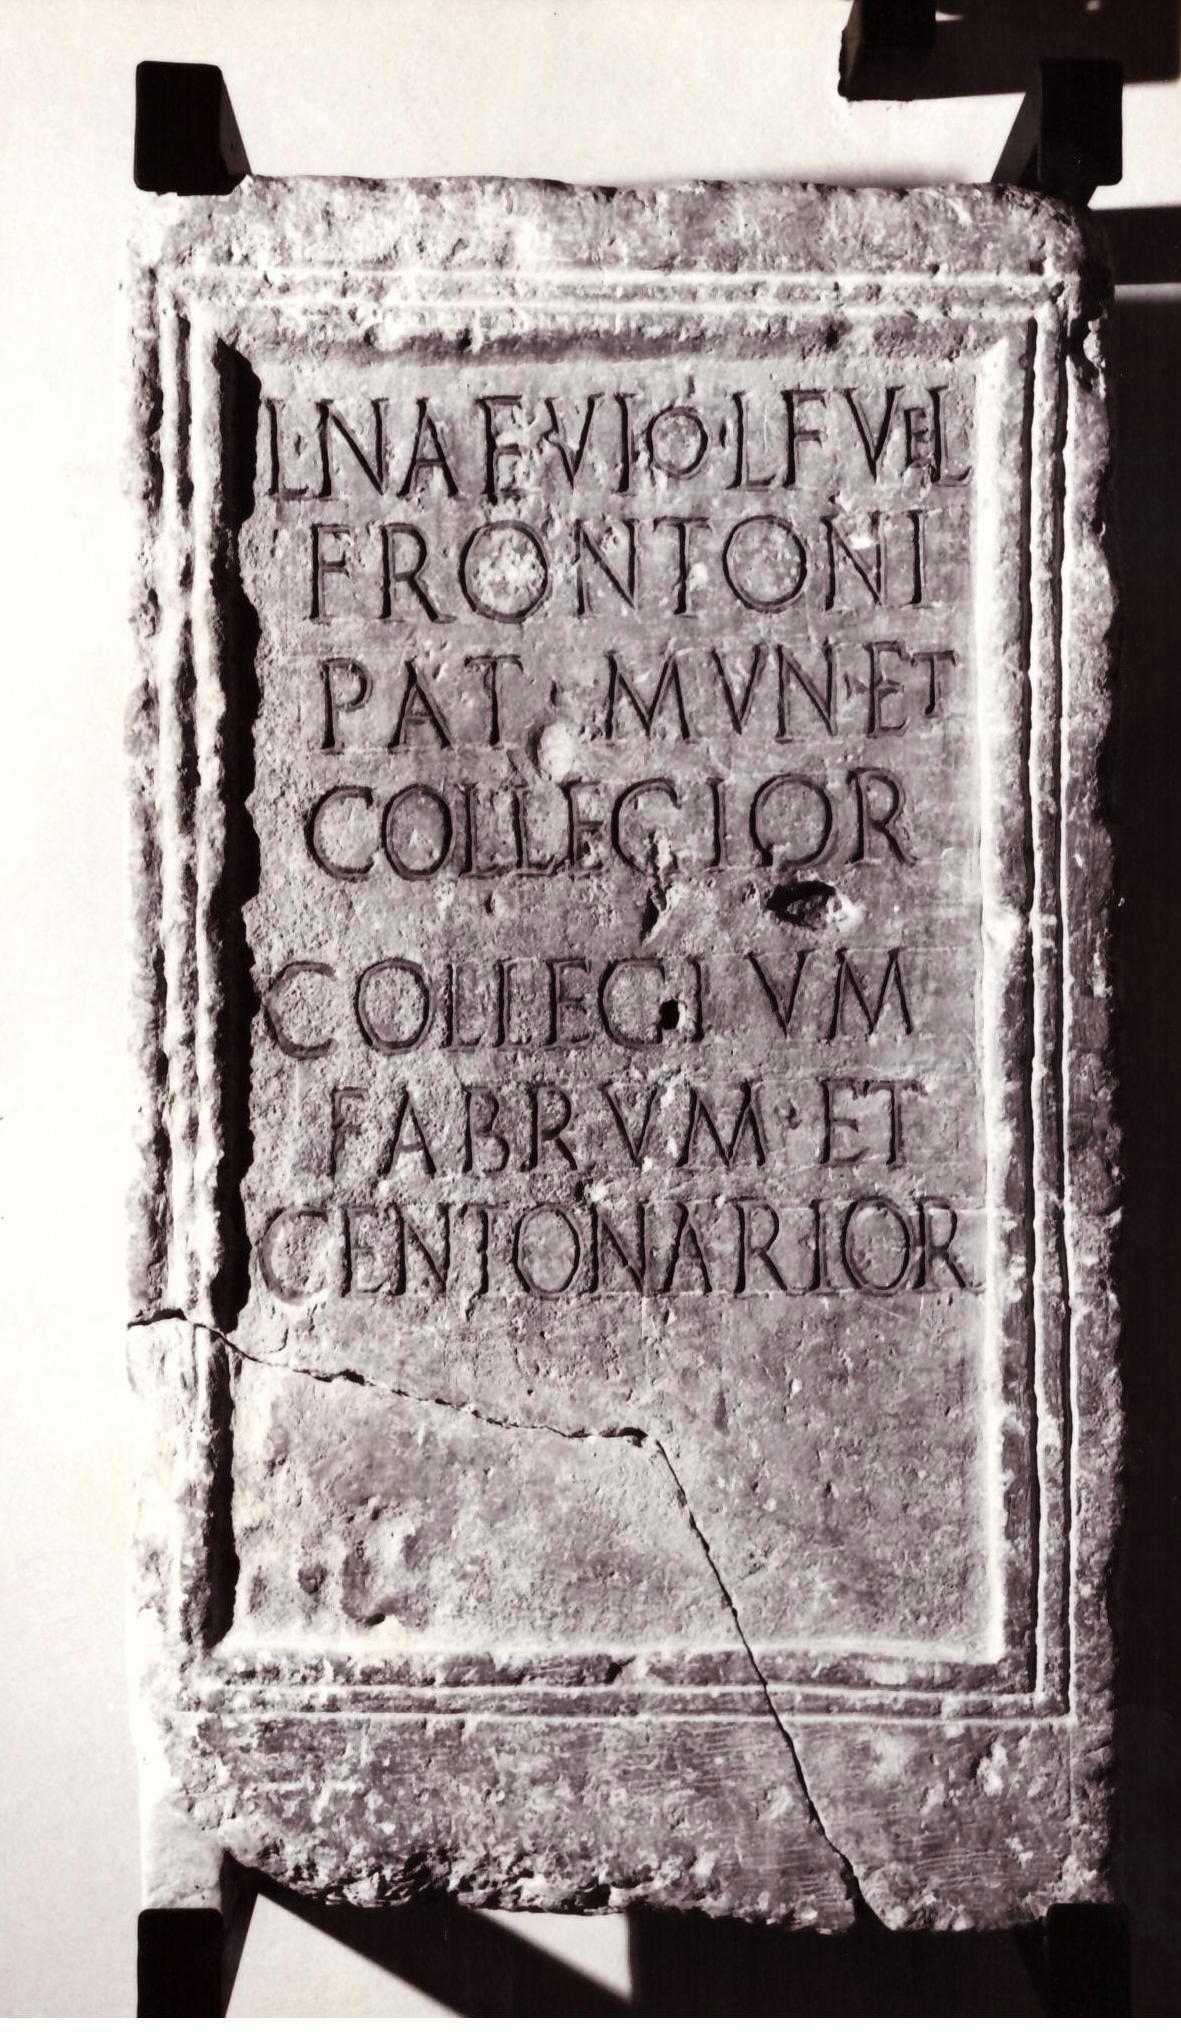 L·NAEVIO·L F VEL
FRONTONI
PAT · MVN·ET
COLLEGIOR
COLLEGIVM
FABRVM·ET
CENTONARIOR